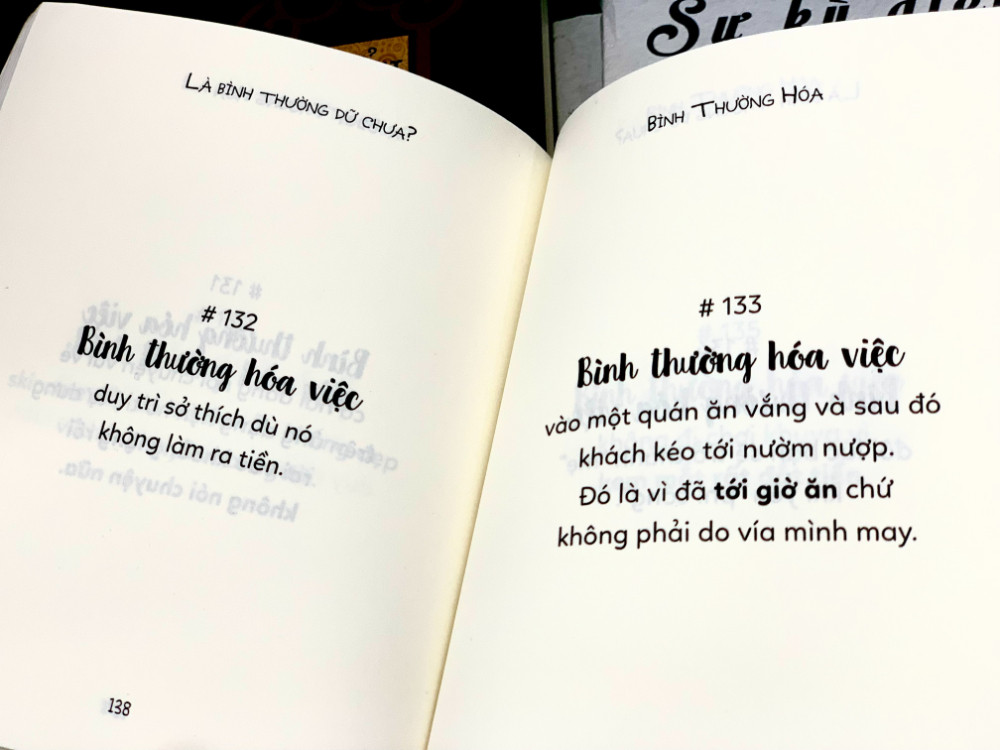 Sự kì diệu
LÀ BÌNH THƯỜNG DỮ CHƯA?
# 132
Bình thường hóa việc
duy trì sở thích dù nó
không làm ra tiền.
138
BÌNH THƯỜNG HÓA
# 133
Bình thường hóa việc
vào một quán ăn vắng và sau đó
khách kéo tới nườm nượp.
Đó là vì đã tới giờ ăn chứ
không phải do vía mình may.